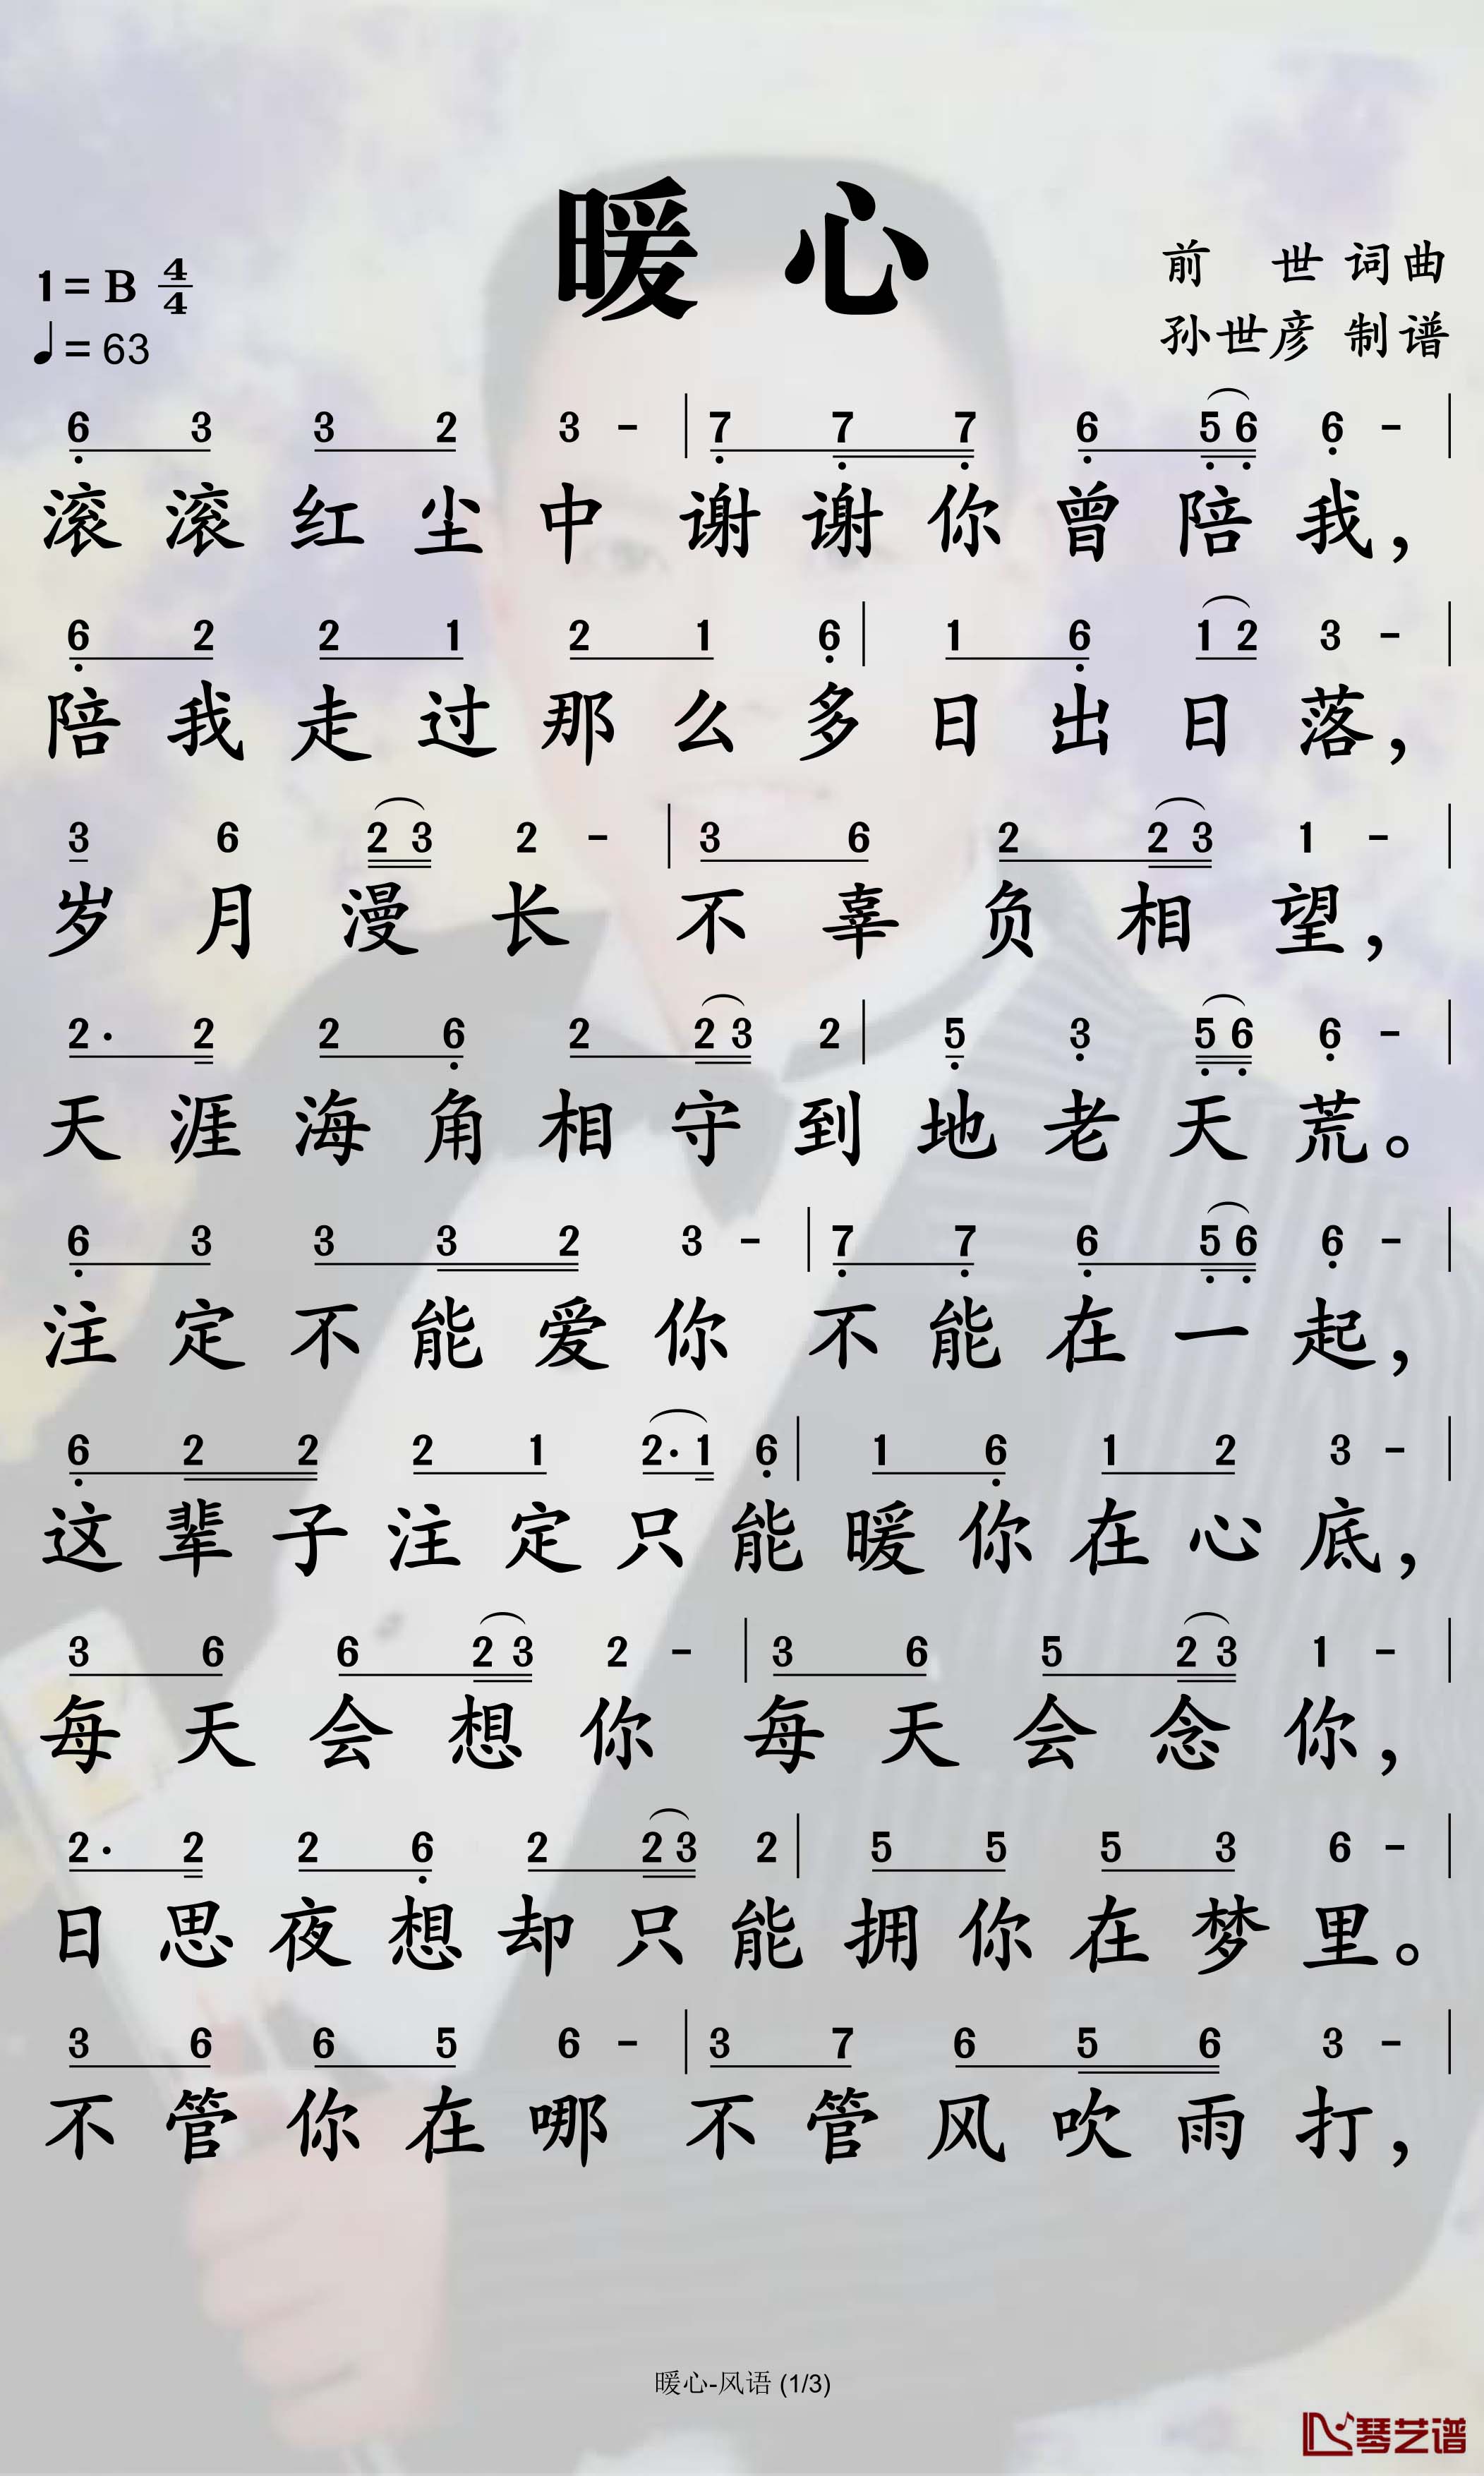 暖 心
1=B 4/4
前 世 词曲
♩=63
孙世彦 制谱
6 3 3 2 3 - | 7 7 7 6 5 6 6 - |
滚滚红尘中 谢谢你曾陪我，
6 2 2 1 2 1 6 | 1 6 1 2 3 - |
陪我走过那么多日出日落，
3 6 2 3 2 - | 3 6 2 2 3 1 - |
岁月漫长 不辜负相望，
2· 2 2 6 2 2 3 2 | 5 3 5 6 6 - |
天涯海角相守到地老天荒。
6 3 3 3 2 3 - | 7 7 6 5 6 6 - |
注定不能爱你 不能在一起，
6 2 2 2 1 2· 1 6 | 1 6 1 2 3 - |
这辈子注定只能暖你在心底，
3 6 6 2 3 2 - | 3 6 5 2 3 1 - |
每天会想你 每天会念你，
2· 2 2 6 2 2 3 2 | 5 5 5 3 6 - |
日思夜想却只能拥你在梦里。
3 6 6 5 6 - | 3 7 6 5 6 3 - |
不管你在哪 不管风吹雨打，
暖心-风语 (1/3)
琴艺谱